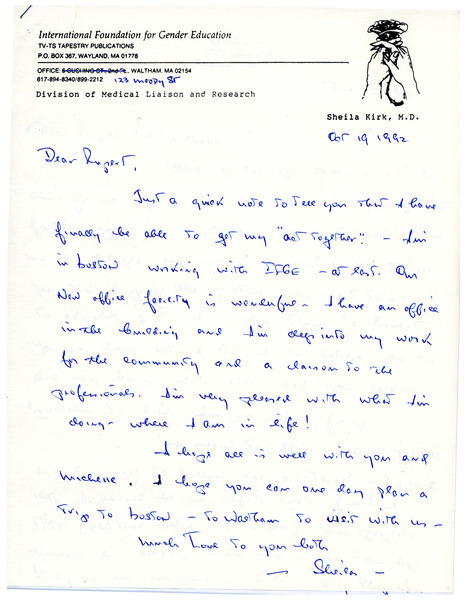 International Foundation for Gender Education
TV-TS TAPESTRY PUBLICATIONS
P.O. BOX 367, WAYLAND, MA 01778
OFFICE: 6 CUSHING ST. 2nd FL., WALTHAM, MA 02154
617-894-8340/899-2212 123 moody St
Division of Medical Liaison and Research
Sheila Kirk, M.D.
Oct 19 1992
Dear Rupert,
Just a quick note to tell you that I have
finally be able to get my "act together" - I'm
in boston working with IFGE - at last. Our
New office facility is wonderful - I have an office
in the building and I'm deep into my work
for the community and a liaison to the
professionals. I'm very pleased with what I'm
doing - where I am in life!
I hope all is well with you and
michelle. I hope you can one day plan a
trip to boston - to Waltham to visit with us -
much Love to you both
- Sheila -